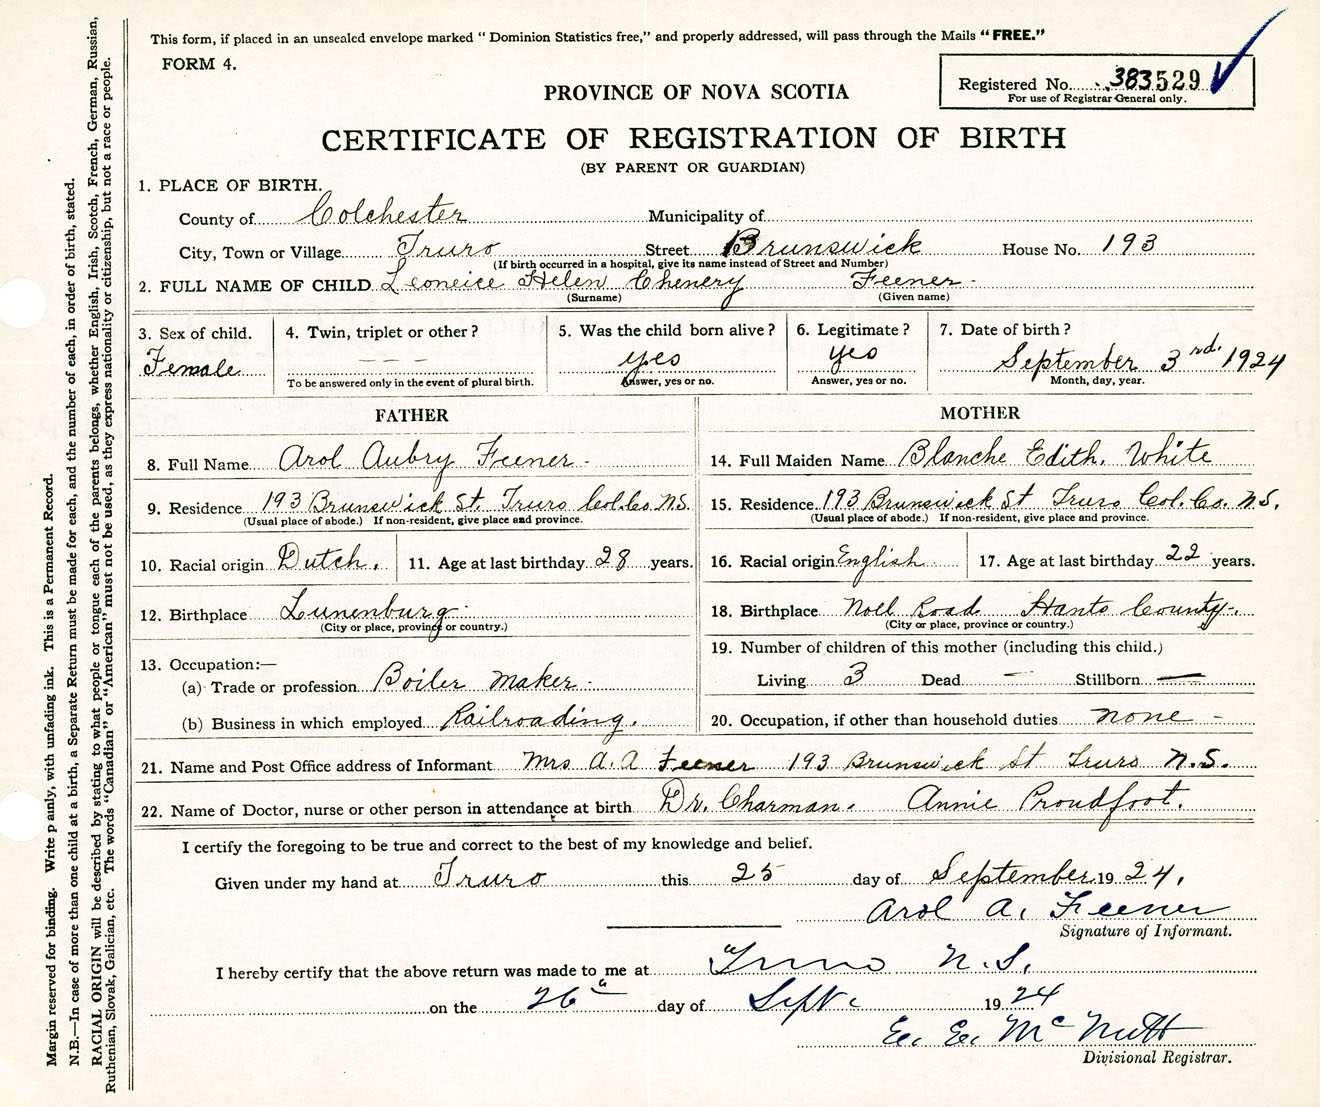 This form, if placed in an unsealed envelope marked " Dominion Statistics free," and properly addressed, will pass through the Mails "FREE."
FORM 4.
Registered No. 383529
For use of Registrar General only.
PROVINCE OF NOVA SCOTIA
CERTIFICATE OF REGISTRATION OF BIRTH
(BY PARENT OR GUARDIAN)
1. PLACE OF BIRTH.
County of Colchester Municipality of
City, Town or Village Truro Street Brunswick House No. 193
(If birth occurred in a hospital, give its name instead of Street and Number)
2. FULL NAME OF CHILD Leoneice Helen Chenery Feener -
(Surname) (Given name)
3. Sex of child. 4. Twin, triplet or other? 5. Was the child born alive? 6. Legitimate? 7. Date of birth?
Female --- yes yes September 3rd. 1924
To be answered only in the event of plural birth. Answer, yes or no. Answer, yes or no. Month, day, year.
FATHER
8. Full Name Arol Aubry Feener -
9. Residence 193 Brunswick St. Truro Col. Co. N.S.
(Usual place of abode.) If non-resident, give place and province.
10. Racial origin Dutch. 11. Age at last birthday 28 years.
12. Birthplace Lunenburg
(City or place, province or country.)
13. Occupation:—
(a) Trade or profession Boiler maker -
(b) Business in which employed Railroading.
MOTHER
14. Full Maiden Name Blanche Edith. White
15. Residence 193 Brunswick St Truro Col. Co. N.S.
(Usual place of abode.) If non-resident, give place and province.
16. Racial origin English 17. Age at last birthday 22 years.
18. Birthplace Noel Road Hants County -
(City or place, province or country.)
19. Number of children of this mother (including this child.)
Living 3 Dead — Stillborn —
20. Occupation, if other than household duties none -
21. Name and Post Office address of Informant Mrs A. A Feener 193 Brunswick St Truro N.S.
22. Name of Doctor, nurse or other person in attendance at birth Dr. Charman. Annie Proudfoot.
I certify the foregoing to be true and correct to the best of my knowledge and belief.
Given under my hand at Truro this 25 day of September 1924.
Arol A. Feener
Signature of Informant.
I hereby certify that the above return was made to me at Truro N.S.
on the 26" day of Sept. 1924
E. E. McNutt
Divisional Registrar.
Margin reserved for binding. Write p anly, with unfading ink. This is a Permanent Record.
N.B.—In case of more than one child at a birth, a Separate Return must be made for each, and the number of each, in order of birth, stated.
RACIAL ORIGIN will be described by stating to what people or tongue each of the parents belongs, whether English, Irish, Scotch, French, German, Russian,
Ruthenian, Slovak, Galician, etc. The words "Canadian" or "American" must not be used, as they express nationality or citizenship, but not a race or people.